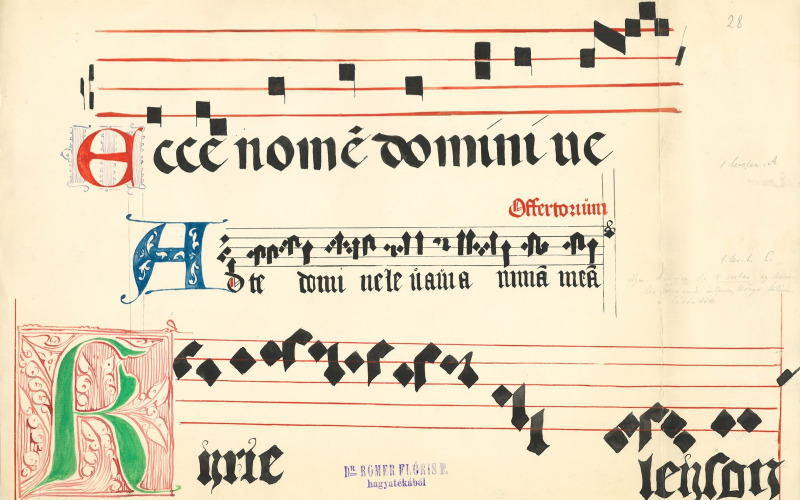 28
Ecce nomē domini ue
Offertorium
Ad te domi ne le uaui a nimā meā
Kyrie leyson
Dr. RÓMER FLÓRIS F.
hagyatékából